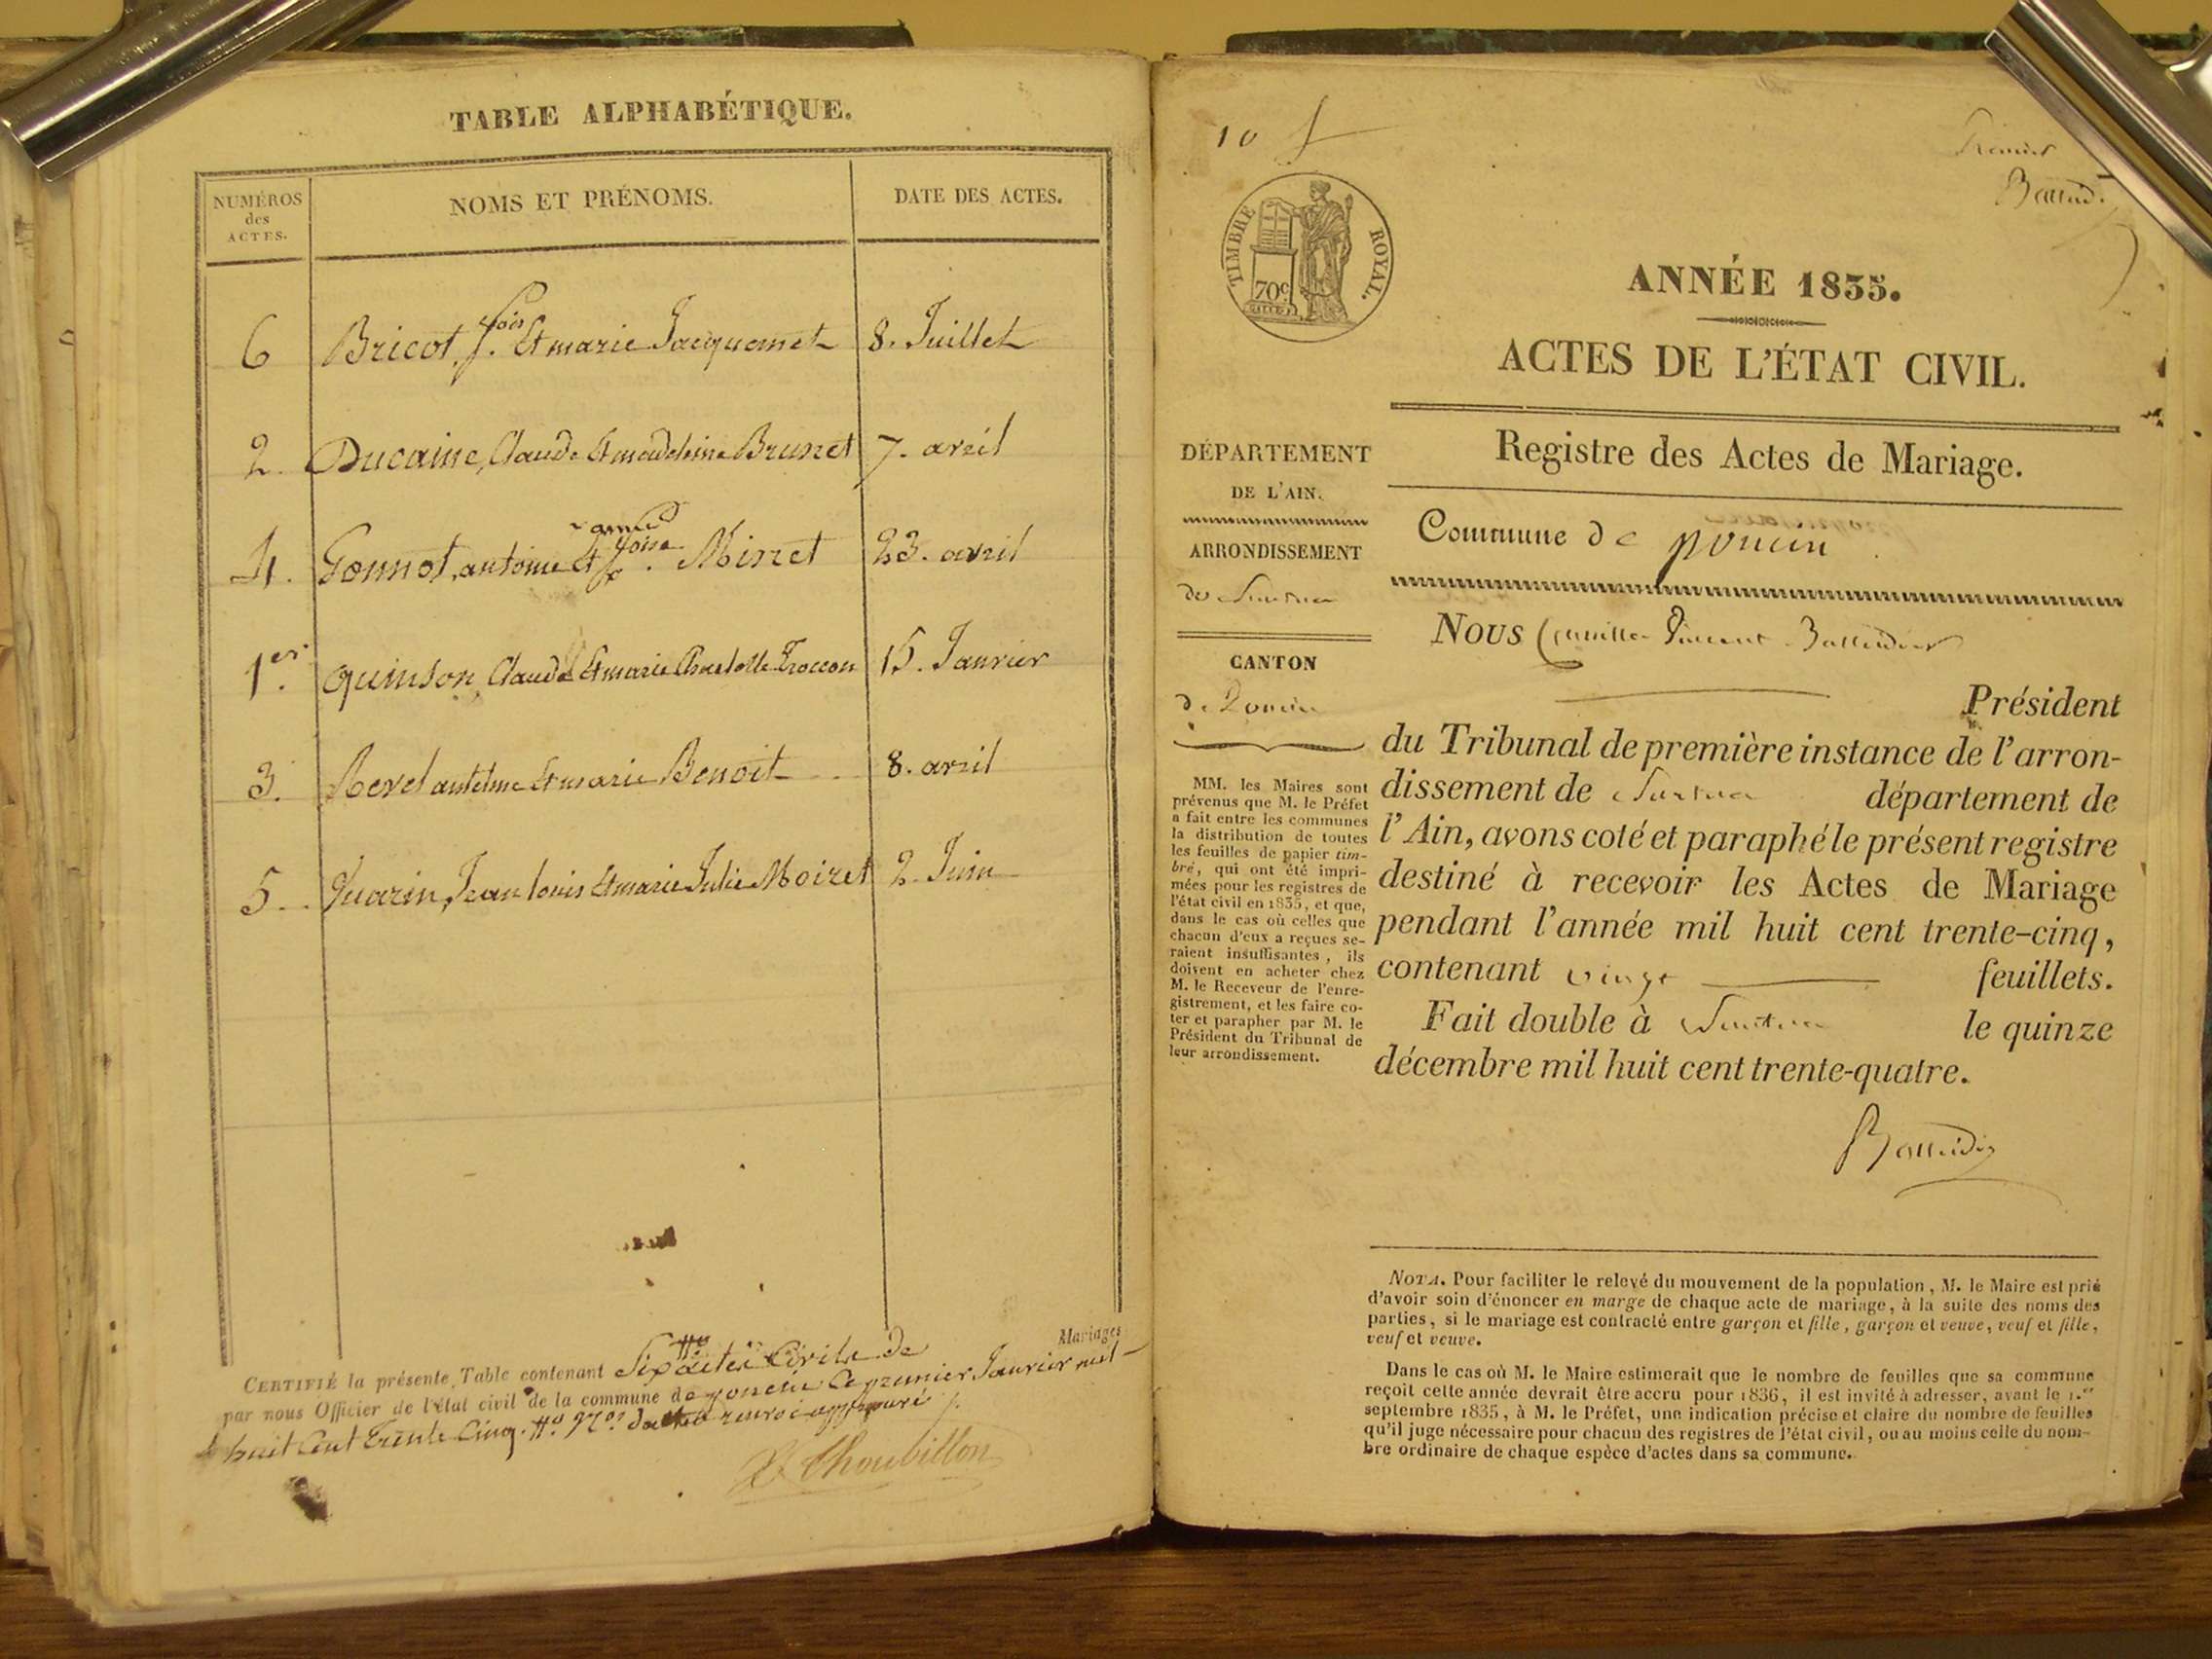 TABLE ALPHABÉTIQUE.
NUMÉROS
des
ACTES.
NOMS ET PRÉNOMS.
DATE DES ACTES.
6 Bricot, f.çois Et marie Jacquemet 8. Juillet
2. Ducaine, Claude Et madeleine Brunet 7. avril
4. Gonnot, antoine Et f.çoise Minet 23. avril
1.er Quinson, Claude Et marie Charlotte Troccon 15. Janvier
3. Revel antelme Et marie Benoit 8. avril
5. Guarin, Jean louis Et marie Julie Moiret 2. Juin
Mariages
CERTIFIÉ la présente Table contenant Six actes Civils de
par nous Officier de l'état civil de la commune de poncin Ce premier Janvier mil
huit Cent Trente Cinq. renvoi approuvé
Choubillon
10
Premier
TIMBRE ROYAL.
70c
ANNÉE 1835.
ACTES DE L'ÉTAT CIVIL.
Registre des Actes de Mariage.
DÉPARTEMENT
DE L'AIN.
ARRONDISSEMENT
de Nantua
CANTON
de Poncin
Commune de poncin
Nous Camille Vincent Ballendier
Président
du Tribunal de première instance de l'arron-
dissement de Nantua département de
l'Ain, avons coté et paraphé le présent registre
destiné à recevoir les Actes de Mariage
pendant l'année mil huit cent trente-cinq,
contenant vingt feuillets.
Fait double à Nantua le quinze
décembre mil huit cent trente-quatre.
MM. les Maires sont
prévenus que M. le Préfet
a fait entre les communes
la distribution de toutes
les feuilles de papier tim-
bré, qui ont été impri-
mées pour les registres de
l'état civil en 1835, et que,
dans le cas où celles que
chacun d'eux a reçues se-
raient insuffisantes, ils
doivent en acheter chez
M. le Receveur de l'enre-
gistrement, et les faire co-
ter et parapher par M. le
Président du Tribunal de
leur arrondissement.
NOTA. Pour faciliter le relevé du mouvement de la population, M. le Maire est prié
d'avoir soin d'énoncer en marge de chaque acte de mariage, à la suite des noms des
parties, si le mariage est contracté entre garçon et fille, garçon et veuve, veuf et fille,
veuf et veuve.
Dans le cas où M. le Maire estimerait que le nombre de feuilles que sa commune
reçoit cette année devrait être accru pour 1836, il est invité à adresser, avant le 1.er
septembre 1835, à M. le Préfet, une indication précise et claire du nombre de feuilles
qu'il juge nécessaire pour chacun des registres de l'état civil, ou au moins celle du nom-
bre ordinaire de chaque espèce d'actes dans sa commune.